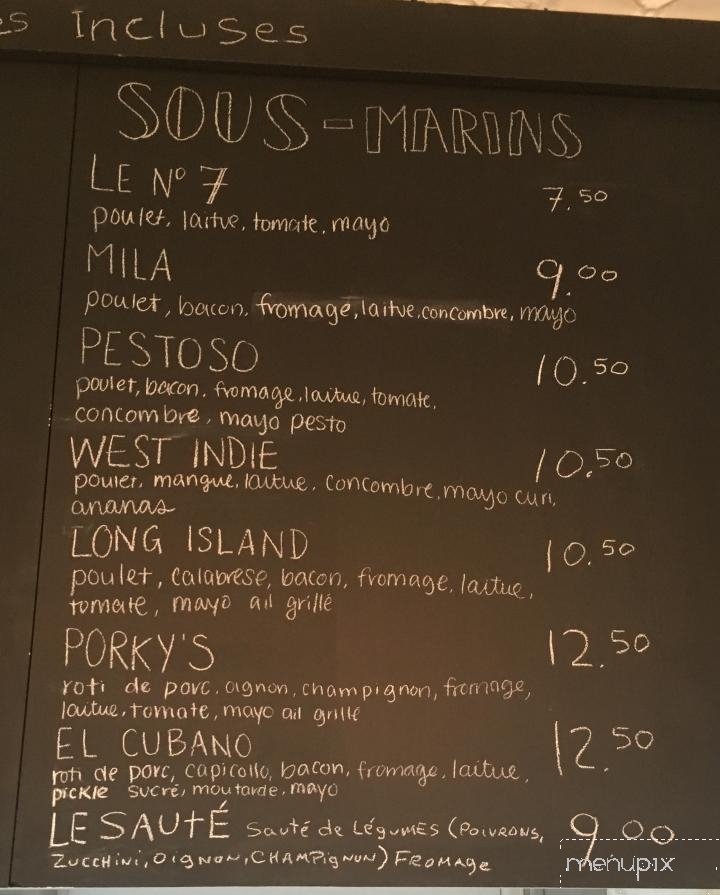 es Incluses
SOUS-MARINS
LE Nº 7 7.50
poulet, laitue, tomate, mayo
MILA 9.00
poulet, bacon, fromage, laitue, concombre, mayo
PESTOSO 10.50
poulet, bacon, fromage, laitue, tomate,
concombre, mayo pesto
WEST INDIE 10.50
poulet, mangue, laitue, concombre, mayo curi,
ananas
LONG ISLAND 10.50
poulet, calabrese, bacon, fromage, laitue,
tomate, mayo ail grillé
PORKY'S 12.50
roti de porc, oignon, champignon, fromage,
laitue, tomate, mayo ail grillé
EL CUBANO 12.50
roti de porc, capicollo, bacon, fromage, laitue,
pickle sucré, moutarde, mayo
LE SAUTÉ Sauté de Légumes (Poivrons, 9.00
Zucchini, Oignon, Champignon) Fromage
menupix